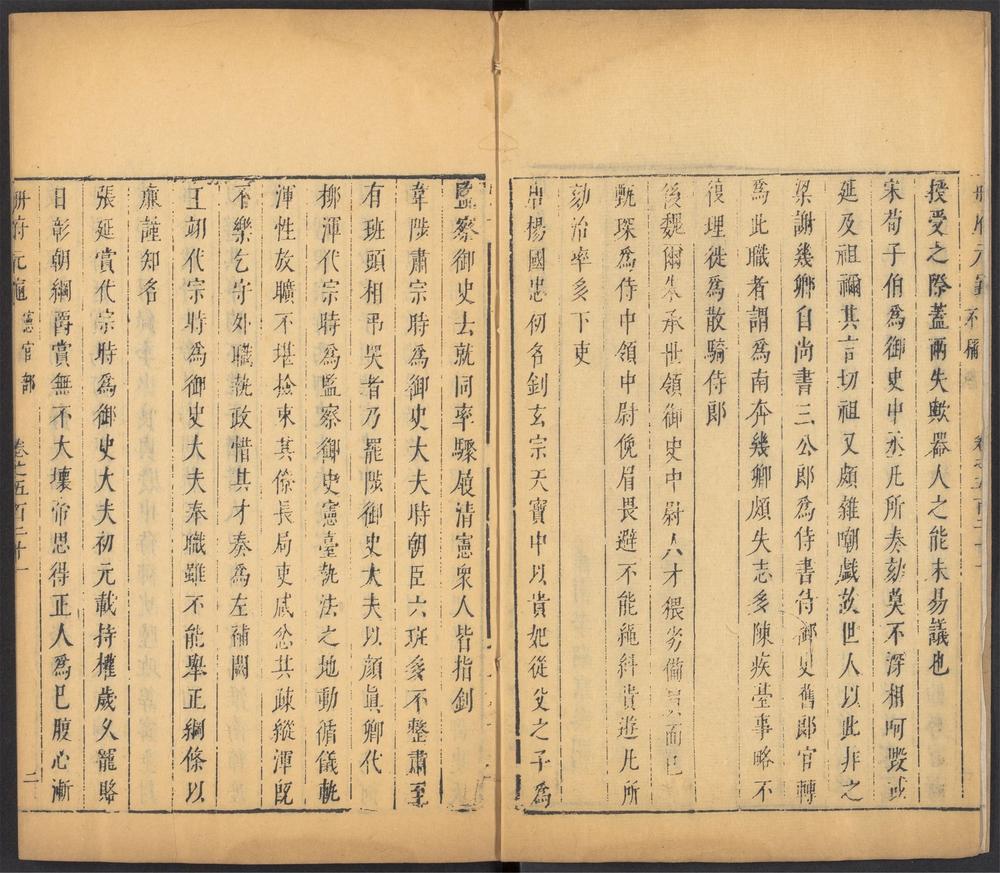 冊府元龜 不稱 卷之五百二十一
授受之際蓋兩失歟器人之能未易議也
宋荀子伯為御史中丞凡所奏劾莫不深相呵毀或
延及祖禰其言切祖又頗雜嘲戲故世人以此非之
梁謝幾卿自尚書三公郎為侍書侍御史舊郎官轉
為此職者謂為南奔幾卿頗失志多陳疾臺事略不
復理徙為散騎侍郎
後魏爾朱承世領御史中尉人才猥劣備員而已
甄琛為侍中領中尉俛眉畏避不能繩糾貴遊凡所
劾治率多下吏
唐楊國忠初名釗玄宗天寶中以貴妃從父之子為
監察御史去就同率驟履清憲衆人皆指釗
韋陟肅宗時為御史大夫時朝臣六班多不整肅至
有班頭相弔哭者乃罷陟御史大夫以顏眞卿代
柳渾代宗時為監察御史憲臺執法之地動循儀軌
渾性放曠不堪撿束其僚長局吏咸忿其疎縱渾旣
不樂乞守外職執政惜其才奏為左補闕
王翊代宗時為御史大夫奉職雖不能舉正綱條以
㢘謹知名
張延賞代宗時為御史大夫初元載持權歲久寵賂
日彰朝綱爵賞無不大壞帝思得正人為巳腹心漸
冊府元龜 憲官部 卷之五百二十一 二